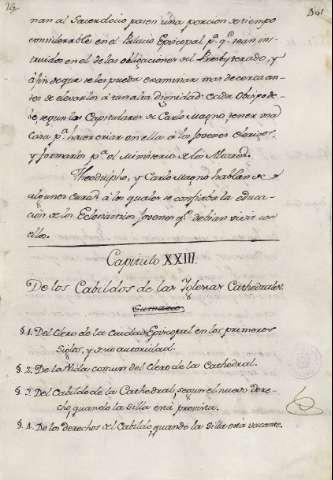 nan al Sacerdocio pasen una porcion de tiempo
considerable en el Palacio Episcopal pª qe sean ins-
truidos en el de las obligaciones del Presbyterado, y
á fin de que se les pueda examinar mas de cerca an-
tes de elevarlos á tan alta dignidad. Cada Obispo de-
be, segun los Capitulares de Carlo Magno, tener una
casa pª hacer criar en ella á los jovenes clerigos,
y formarlos pª el Ministerio de los Altares.
Theodulpho, y Carlo Magno hablan de
algunos Curas á los quales se confiaba la educa-
cion de los Eclesiasticos jovenes qe debian vivir con
ellos.
Capitulo XXIII.
De los Cabildos de las Iglesias Cathedrales.
Sumario
§ 1. Del Clero de la Ciudad Episcopal en los primeros
Siglos, y de su autoridad.
§ 2. De la Vida comun del Clero de la Cathedral.
§ 3. Del Cabildo de la Cathedral, segun el nuevo dere-
cho, quando la Silla está provista.
§ 4. De los derechos del Cabildo, quando la Silla está vacante.